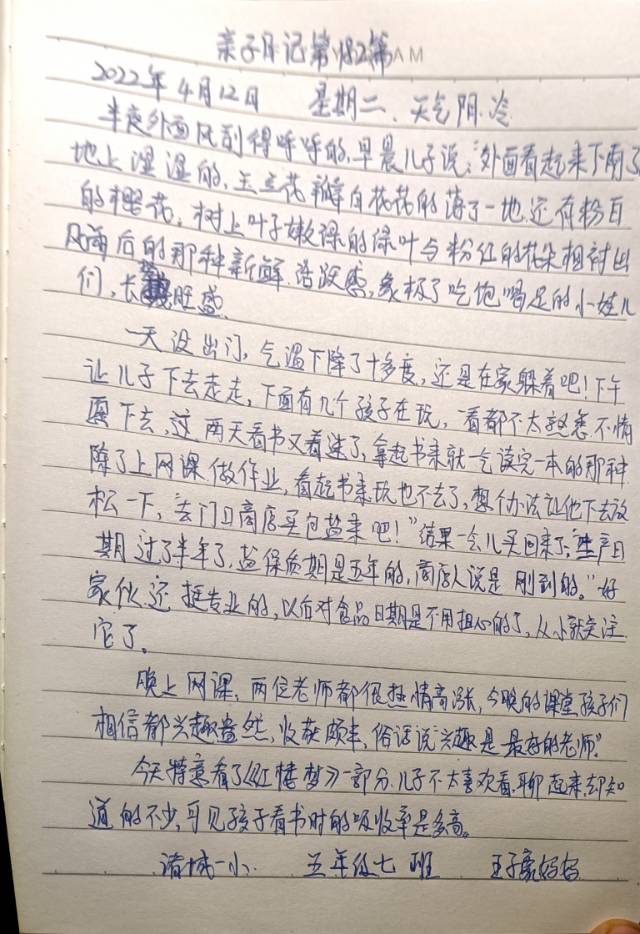 亲子日记第182篇AM
2022年4月12日 星期二、天气阴.冷
半夜外面风刮得呼呼的,早晨儿子说:"外面看起来下雨了
地上湿湿的,玉兰花瓣白花花的落了一地,还有粉白
的樱花,树上叶子嫩绿的绿叶与粉红的花朵相衬出
风雨后的那种新鲜.活跃感,象极了吃饱喝足的小娃儿
们,长旺盛.
一天没出门,气温下降了十多度,还是在家躲着吧!下午
让儿子下去走走,下面有几个孩子在玩,看都不太熟悉,不情
愿下去,这两天看书又着迷了,拿起书来就一气读完一本的那种
除了上网课做作业,看起书来玩也不去了,想个办法让他下去放
松一下,"去门口商店买包盐来吧!"结果一会儿买回来了:"生产日
期过了半年了,盐保质期是五年的,商店人说是刚到的。"好
家伙,还挺专业的,以后对食品日期是不用担心的了,从小就关注
它了。
晚上网课,两位老师都很热情高涨,今晚的课堂孩子们
相信都兴趣盎然,收获颇丰,俗话说"兴趣是最好的老师"
今天特意看了《红楼梦》一部分,儿子不太喜欢看,聊起来却知
道的不少,可见孩子看书时的吸收率是多高。
诸城一小 五年级七班 王子豪妈妈